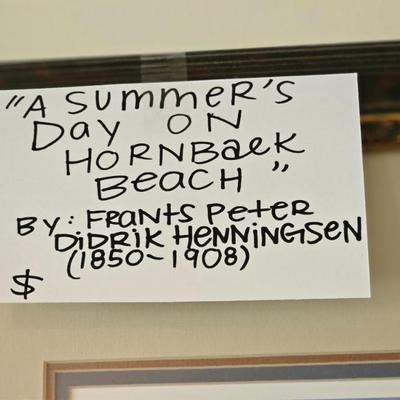 "A SUMMER'S
DAY ON
HORNBaeK
BEACH"
BY: FRANTS PETER
DiDRiK HENNiNGSEN
(1850~1908)
$